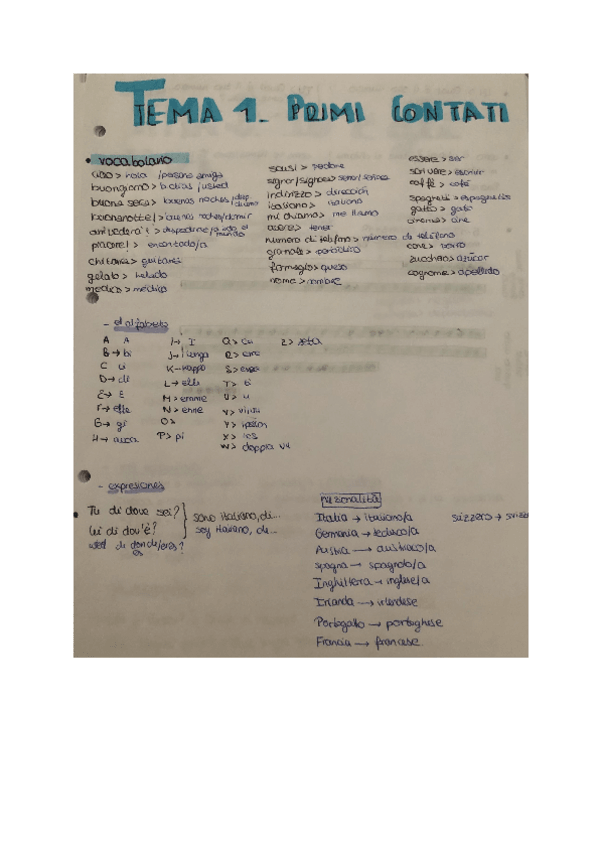 TEMA 1. PRIMI CONTATI
• vocabolario
ciao > hola /persona amiga
buongiorno > b. dias /usted
buona sera > buenas noches /
buonanotte > buenas noches/dormir
piacere! > encantado/a
chitarra > guitarra
gelato > helado
medico > médico
scusi > perdone
signor/signora > señor/señora
indirizzo > dirección
italiano > italiano
mi chiamo > me llamo
avere > tener
numero di telefono > número de teléfono
giornale > periódico
formaggio > queso
nome > nombre
essere > ser
scrivere > escribir
caffé > café
spaghetti > espaguetis
gatto > gato
cinema > cine
cane > perro
zucchero > azúcar
cognome > apellido
- el alfabeto
A A
B → bi
C ci
D → di
E → E
F → effe
G → gi
H → acca
I → I
J → i lunga
K → kappa
L → elle
M > emme
N > enne
O >
P > pi
Q > cu
R > erre
S > esse
T > ti
U > u
V > vi/vu
Y > ipsilon
X > ics
W > doppia vu
Z > zeta
- expresiones
Tu di dove sei? } sono italiano, di...
Lei di dov'è? soy italiano, de...
usted de donde/eres?
es
nazionalità
Italia → italiano/a
Germania → tedesco/a
Austria → austriaco/a
spagna → spagnolo/a
Inghilterra → inglese/a
Irlanda → irlandese
Portogallo → portoghese
Francia → francese
svizzero →